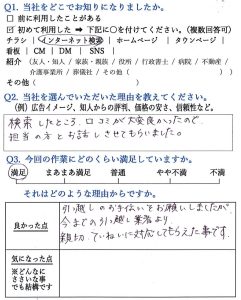 Q1. 当社をどこでお知りになりましたか。
□ 前に利用したことがある
☑ 初めて利用した ➡ 下記に○を付けてください。(複数回答可)
チラシ | インターネット検索 | ホームページ | タウンページ |
看板 | CM | DM | SNS |
紹介 (友人・知人 / 家族・親族 / 役所 / 行政書士 / 病院 / 不動産 /
介護事業所 / 葬儀社 / その他 )
その他 ( )
Q2. 当社を選んでいただいた理由を教えてください。
(例)広告イメージ、知人からの評判、価格の安さ、信頼性など。
検索したところ、口コミが大変良かったので、
担当の方とお話しさせてもらいました。
Q3. 今回の作業にどのくらい満足していますか。
満足 まあまあ満足 普通 やや不満 不満
それはどのような理由からですか。
良かった点
引っ越しのお手伝いをお願いしましたが、
今までの引っ越し業者より
親切、ていねいに対応してもらえた事です。
気になった点
※どんなに
ささいな事
でも結構です